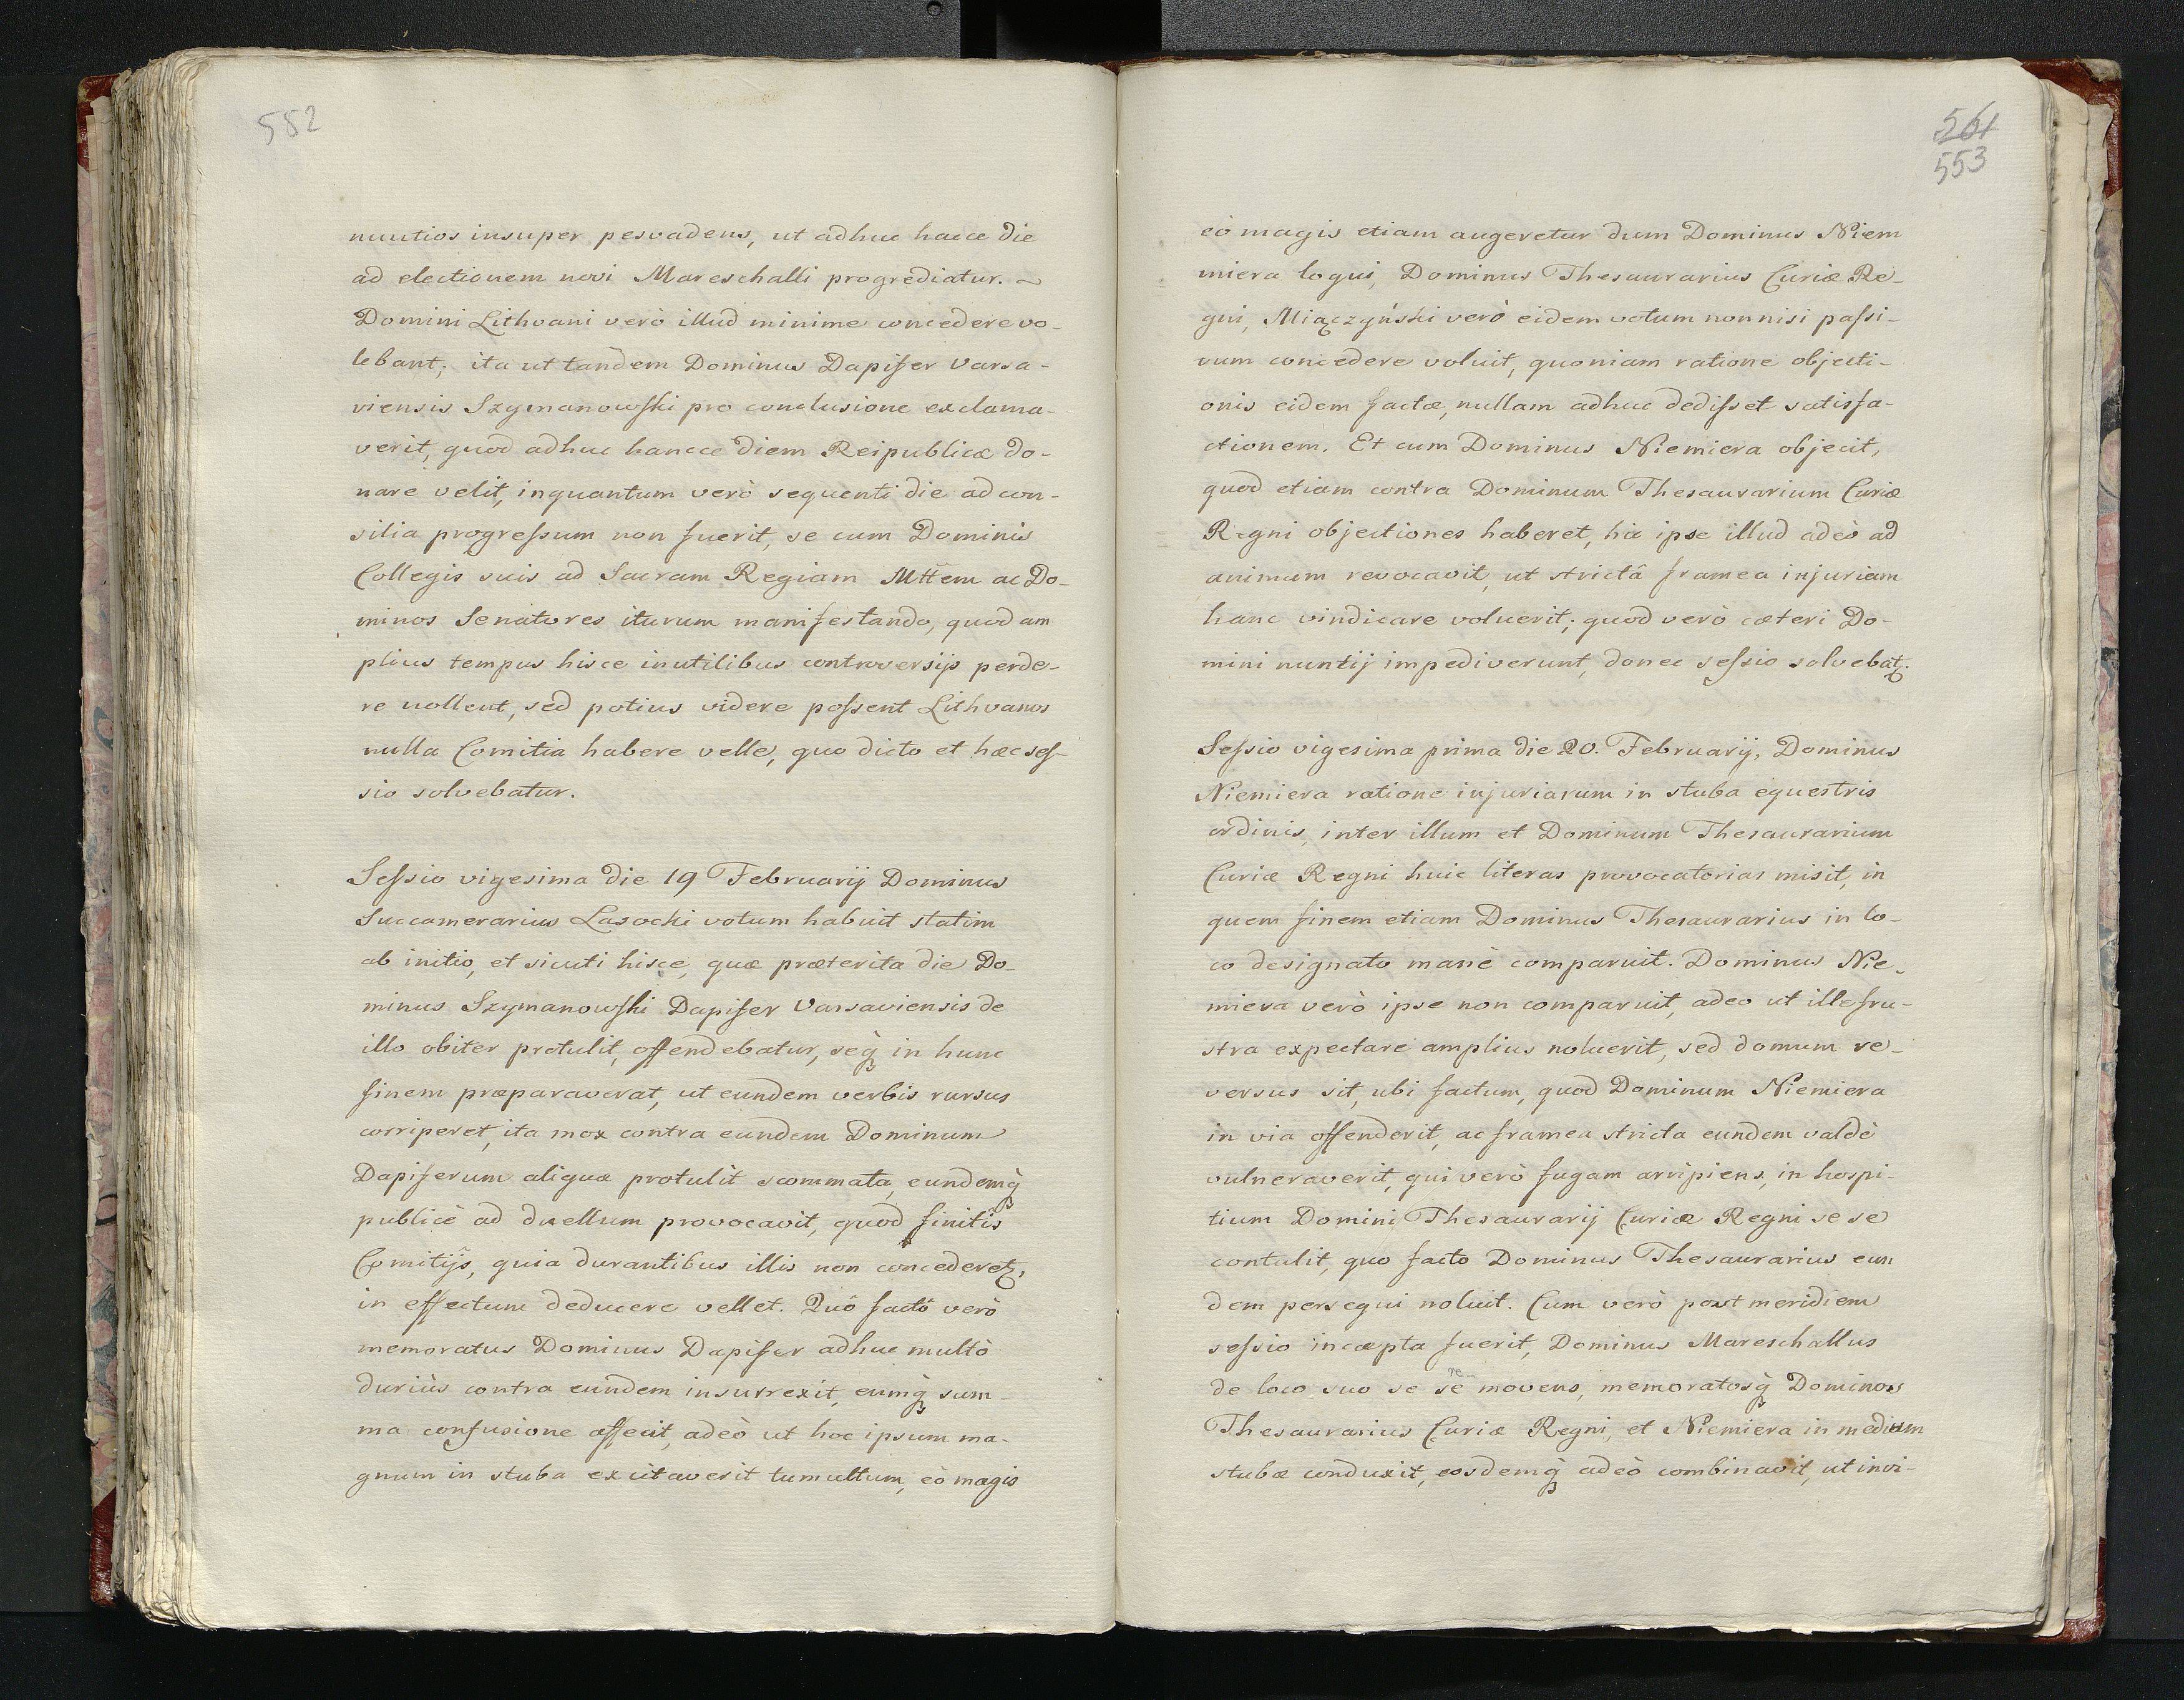 552
nuntios insuper persvadens, ut adhuc hacce die
ad electionem novi Mareschalli progrediatur.
Domini Lithvani verò illud minime concedere vo-
lebant, ita ut tandem Dominus Dapifer Varsa-
viensis Szymanowski pro conclusione exclama-
verit, quod adhuc hancce diem Reipublicæ do-
nare velit, inquantum verò sequenti die ad con-
silia progressum non fuerit, se cum Dominis
Collegis suis ad Sacram Regiam Mttem ac Do-
minos Senatores iturum manifestando, quod am
plius tempus hisce inutilibus controversijs perde-
re nollent, sed potius videre possent Lithvanos
nulla Comitia habere velle, quo dicto et hæc ses-
sio solvebatur.
Sessio vigesima die 19 Februarij Dominus
Succamerarius Lasocki votum habuit statim
ab initio, et sicuti hisce, quæ præterita die Do-
minus Szymanowski Dapifer Varsaviensis de
illo obiter protulit, offendebatur, seq̃ in hunc
finem præparaverat, ut eundem verbis rursus
corriperet, ita mox contra eundem Dominum
Dapiferum aliqua protulit scommata, eundemq̃
publicè ad duellum provocavit, quod finitis
Comitijs, quia durantibus illis non concederetꝫ,
in effectum deducere vellet. Quô factô verò
memoratus Dominus Dapifer adhuc multò
duriùs contra eundem insurrexit, eumq̃ sum-
ma confusione affecit, adeò ut hoc ipsum ma-
gnum in stuba excitaverit tumultum, eò magis
561
553
eò magis etiam augeretur dum Dominus Niem
miera loqui, Dominus Thesaurarius Curiæ Re-
gni, Miączyński verò eidem votum nonnisi passi-
vum concedere voluit, quoniam ratione objecti-
onis eidem factæ, nullam adhuc dedisset satisfa-
ctionem. Et cum Dominus Niemiera objecit,
quod etiam contra Dominum Thesaurarium Curiæ
Regni objectiones haberet, hic ipse illud adeò ad
animum revocavit, ut strictâ framea injuriam
hanc vindicare voluerit; quod verò cæteri Do-
mini nuntij impediverunt, donec sessio solvebatꝫ.
Sessio vigesima prima die 20. Februarij, Dominus
Niemiera ratione injuriarum in stuba equestris
ordinis, inter illum et Dominum Thesaurarium
Curiæ Regni huic literas provocatorias misit, in
quem finem etiam Dominus Thesaurarius in lo-
co designato manè comparuit. Dominus Nie-
miera verò ipse non comparuit, adeo ut ille fru-
stra expectare amplius noluerit, sed domum re-
versus sit, ubi factum, quod Dominum Niemiera
in via offenderit, ac framea stricta eundem valdè
vulneraverit, qui verò fugam arripiens, in hospi-
tium Domini Thesaurarij Curiæ Regni se se
contulit, quo facto Dominus Thesaurarius eun
dem persequi noluit. Cum verò post meridiem
sessio incæpta fuerit, Dominus Mareschallus
de loco suo se se re movens, memoratosq̃ Dominos
Thesaurarius Curiæ Regni, et Niemiera in medium
stubæ conduxit, eosdemq̃ adeò combinavit, ut invi-